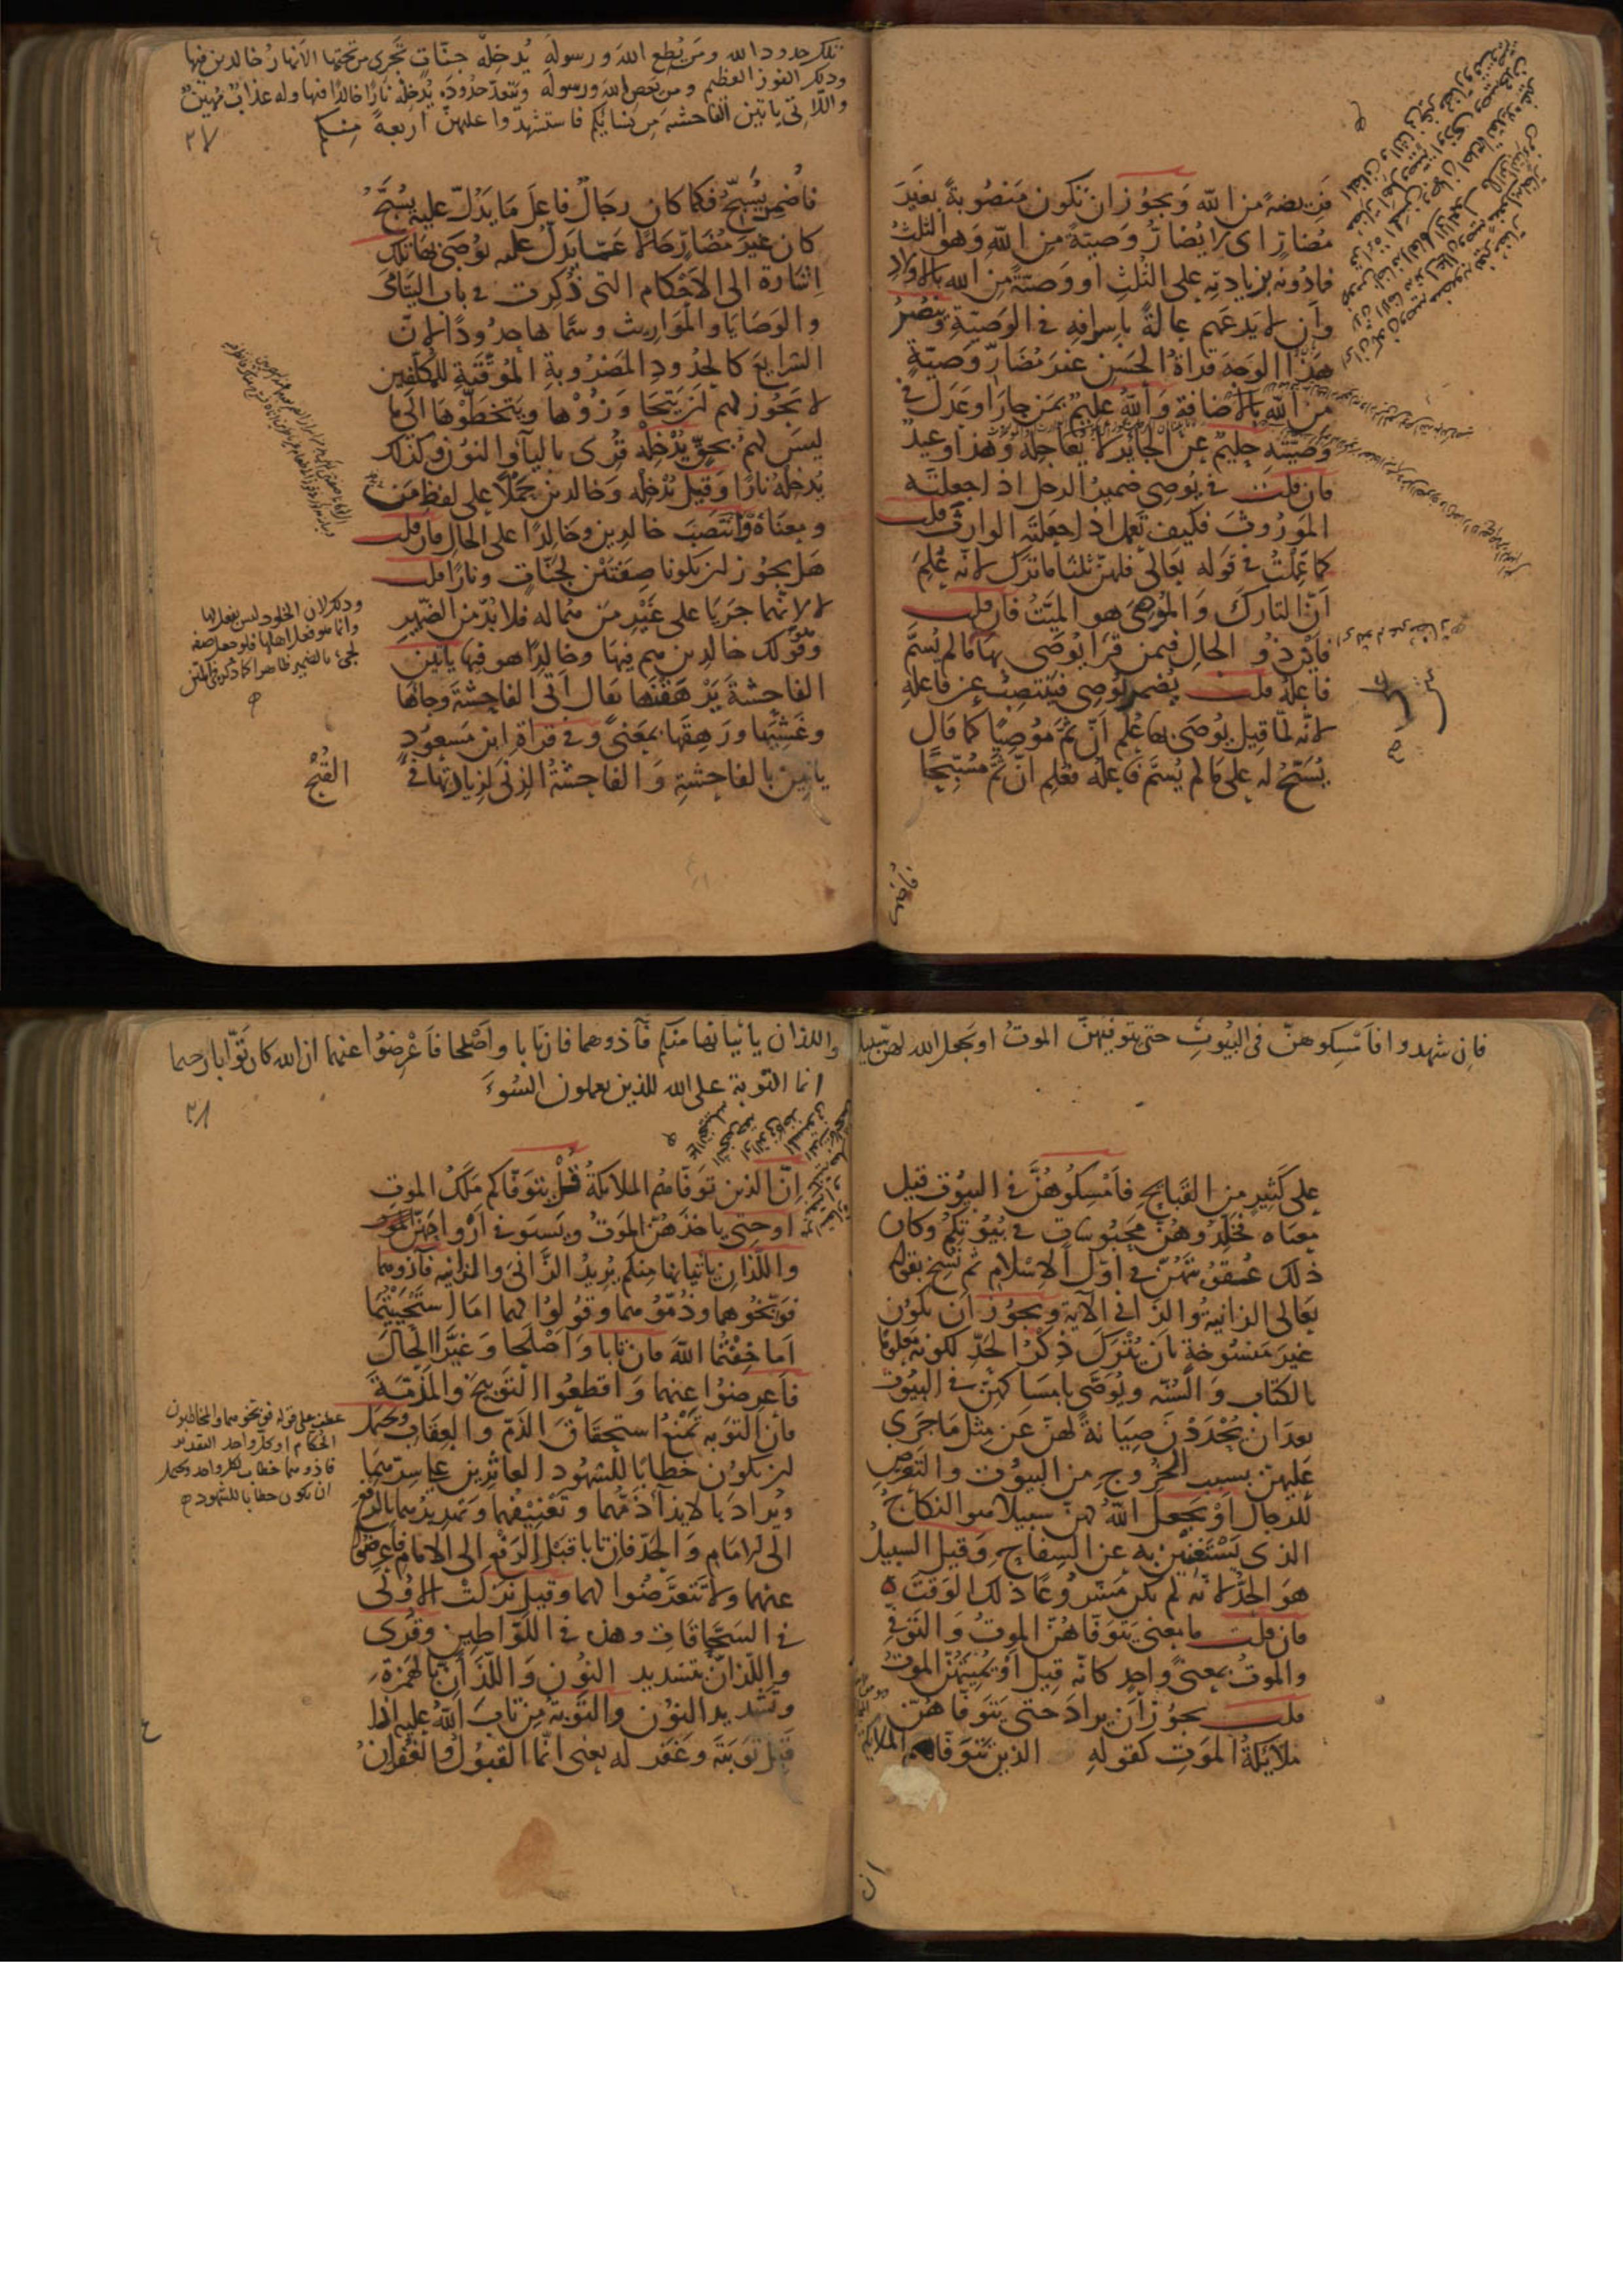 فريضة من الله ويجوز ان تكون منصوبة بغير
مضار اى لا يضار وصية من الله وهو الثلث
فما دونه بزيادته على الثلث او وصية من الله بالاولاد
وأن لا يدعهم عالة باسرافه فى الوصية وينصر
هذا الوجه قراة الحسن غير مضار وصية
من الله بالاضافة والله عليم بمن جار او عدل فى
وصيته حليم عن الجائر لا يعاجله وهذا وعيد
فان قلت فى يوصى ضمير الرجل اذا جعلته
الموروث فكيف تعمل اذا جعلته الوارث قلت
كما عملت فى قوله تعالى فلهن ثلثا ما ترك لانه علم
أن التارك والموصى هو الميت فان قلت
فأين ذو الحال فيمن قرا يوصى بها ما لم يسم
فاعله قلت يضمر يوصى فينتصب عن فاعله
لانه لما قيل يوصى بها علم أن ثم موصيا كما قال
يسبح له على ما لم يسم فاعله فعلم ان ثم مسبحا
تلك حدود الله ومن يطع الله ورسوله يدخله جنات تجرى من تحتها الانهار خالدين فيها
وذلك الفوز العظيم ومن يعص الله ورسوله ويتعد حدوده يدخله نارا خالدا فيها وله عذاب مهين
واللاتى ياتين الفاحشة من نسايكم فاستشهدوا عليهن اربعة منكم
٢٧
فاضمر يسبح فكما كان رجال فاعل ما يدل عليه يسبح
كان غير مضار حالا عما يدل عليه يوصى بها تلك
اشارة الى الاحكام التى ذكرت فى باب اليتامى
والوصايا والمواريث وسماها حدودا لان
الشرايع كالحدود المضروبة الموقتة للمكلفين
لا يجوز لهم ان يتجاوزوها ويتخطوها الى ما
ليس لهم بحق يدخله قرى بالياء والنون وكذلك
يدخله نارا وقيل يدخله وخالدين حملا على لفظ من
ومعناه وانتصب خالدين وخالدا على الحال فان قلت
هل يجوز ان يكونا صفتين لجنات ونارا قلت
لا لانهما جريا على غير من هما له فلا بد من الضمير
وهو قولك خالدين هم فيها وخالدا هو فيها ياتين
الفاحشة يرهقنها يقال اتى الفاحشة وجاها
وغشيها ورهقها بمعنى وفى قراة ابن مسعود
ياتين بالفاحشة والفاحشة الزنى لزيادتها فى
القبح
وذلك لان الخلود ليس بفعل لها
وانما هو فعل اهلها فلو جعل صفة
لجى بالضمير ظاهرا كما ذكره فى المتن
فان شهدوا فامسكوهن فى البيوت حتى يتوفيهن الموت او يجعل الله لهن سبيلا
على كثير من القبايح فامسكوهن فى البيوت قيل
معناه فخلدوهن محبوسات فى بيوتكم وكان
ذلك عقوبتهن فى اول الاسلام ثم نسخ بقوله
تعالى الزانية والزانى الآية ويجوز ان تكون
غير منسوخة بان يترك ذكر الحد لكونه معلوما
بالكتاب والسنة ويوصى بامساكهن فى البيوت
بعد ان يحددن صيانة لهن عن مثل ما جرى
عليهن بسبب الخروج من البيوت والتعرض
للرجال او يجعل الله لهن سبيلا هو النكاح
الذى يستغنين به عن السفاح وقيل السبيل
هو الحد لانه لم يكن مشروعا ذلك الوقت
فان قلت ما معنى يتوفاهن الموت والتوفى
والموت بمعنى واحد كانه قيل او يميتهن الموت
قلت يجوز أن يراد حتى يتوفاهن
ملائكة الموت كقوله الذين تتوفاهم الملايكة
واللذان ياتيانها منكم فآذوهما فان تابا واصلحا فاعرضوا عنهما ان الله كان توابا رحيما
انما التوبة على الله للذين يعملون السوء
٢٨
ان الذين توفاهم الملايكة قل يتوفاكم ملك الموت
او حتى ياخذهن الموت ويستوفى أرواحهن
واللذان ياتيانها منكم يريد الزانى والزانية فآذوهما
فوبخوهما وذموهما وقولوا لهما اما استحييتما
اما خفتما الله فان تابا واصلحا وغيرا الحال
فاعرضوا عنهما واقطعوا التوبيخ والمذمة
فان التوبة تمنع استحقاق الذم والعقاب ويحتمل
ان يكون خطابا للشهود العاثرين على سرهما
ويراد بالايذاء ذمهما وتعنيفهما وتهديدهما بالرفع
الى الامام والحد فان تابا قبل الرفع الى الامام فاعرضوا
عنهما ولا تتعرضوا لهما وقيل نزلت الاولى
فى السحاقات وهذه فى اللواطين وقرى
واللذان بتشديد النون واللذأن بالهمزة
وتشديد النون والتوبة من تاب الله عليه اذا
قبل توبته وغفر له يعنى انما القبول والغفران
عطف على قوله فوبخوهما والمخاطبون
الحكام او كل واحد التقدير
فآذوهما خطاب لكل واحد ويحتمل
ان يكون خطابا للشهود